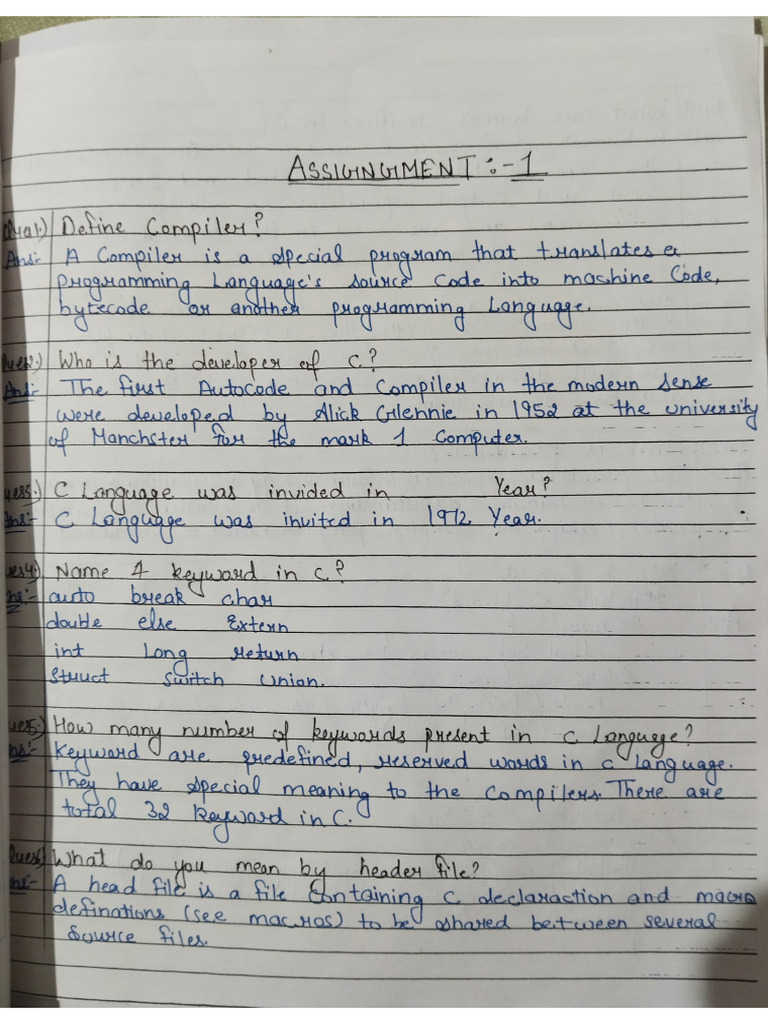 ASSIGNGMENT :- 1
Ques1.) Define Compiler?
Ans:- A Compiler is a special program that translates a
programming Language's source code into machine Code,
bytecode or another programming Language.
Ques2.) Who is the developer of C?
Ans:- The first Autocode and Compiler in the modern sense
were developed by Alick Glennie in 1952 at the university
of Manchster for the mark 1 Computer.
ues3.) C Language was invided in Year?
Ans:- C Language was invited in 1972 Year.
ues4.) Name 4 keyword in C?
Ans:- auto break char
double else Extern
int Long return
Struct Switch Union.
ues5.) How many number of keywords present in C Language?
ns:- Keyword are predefined, reserved words in C language.
They have special meaning to the Compilers. There are
total 32 keyword in C.
Ques6.) What do you mean by header file?
Ans:- A head file is a file Containing C declaraction and macro
definations (see macros) to be shared between several
Source files.